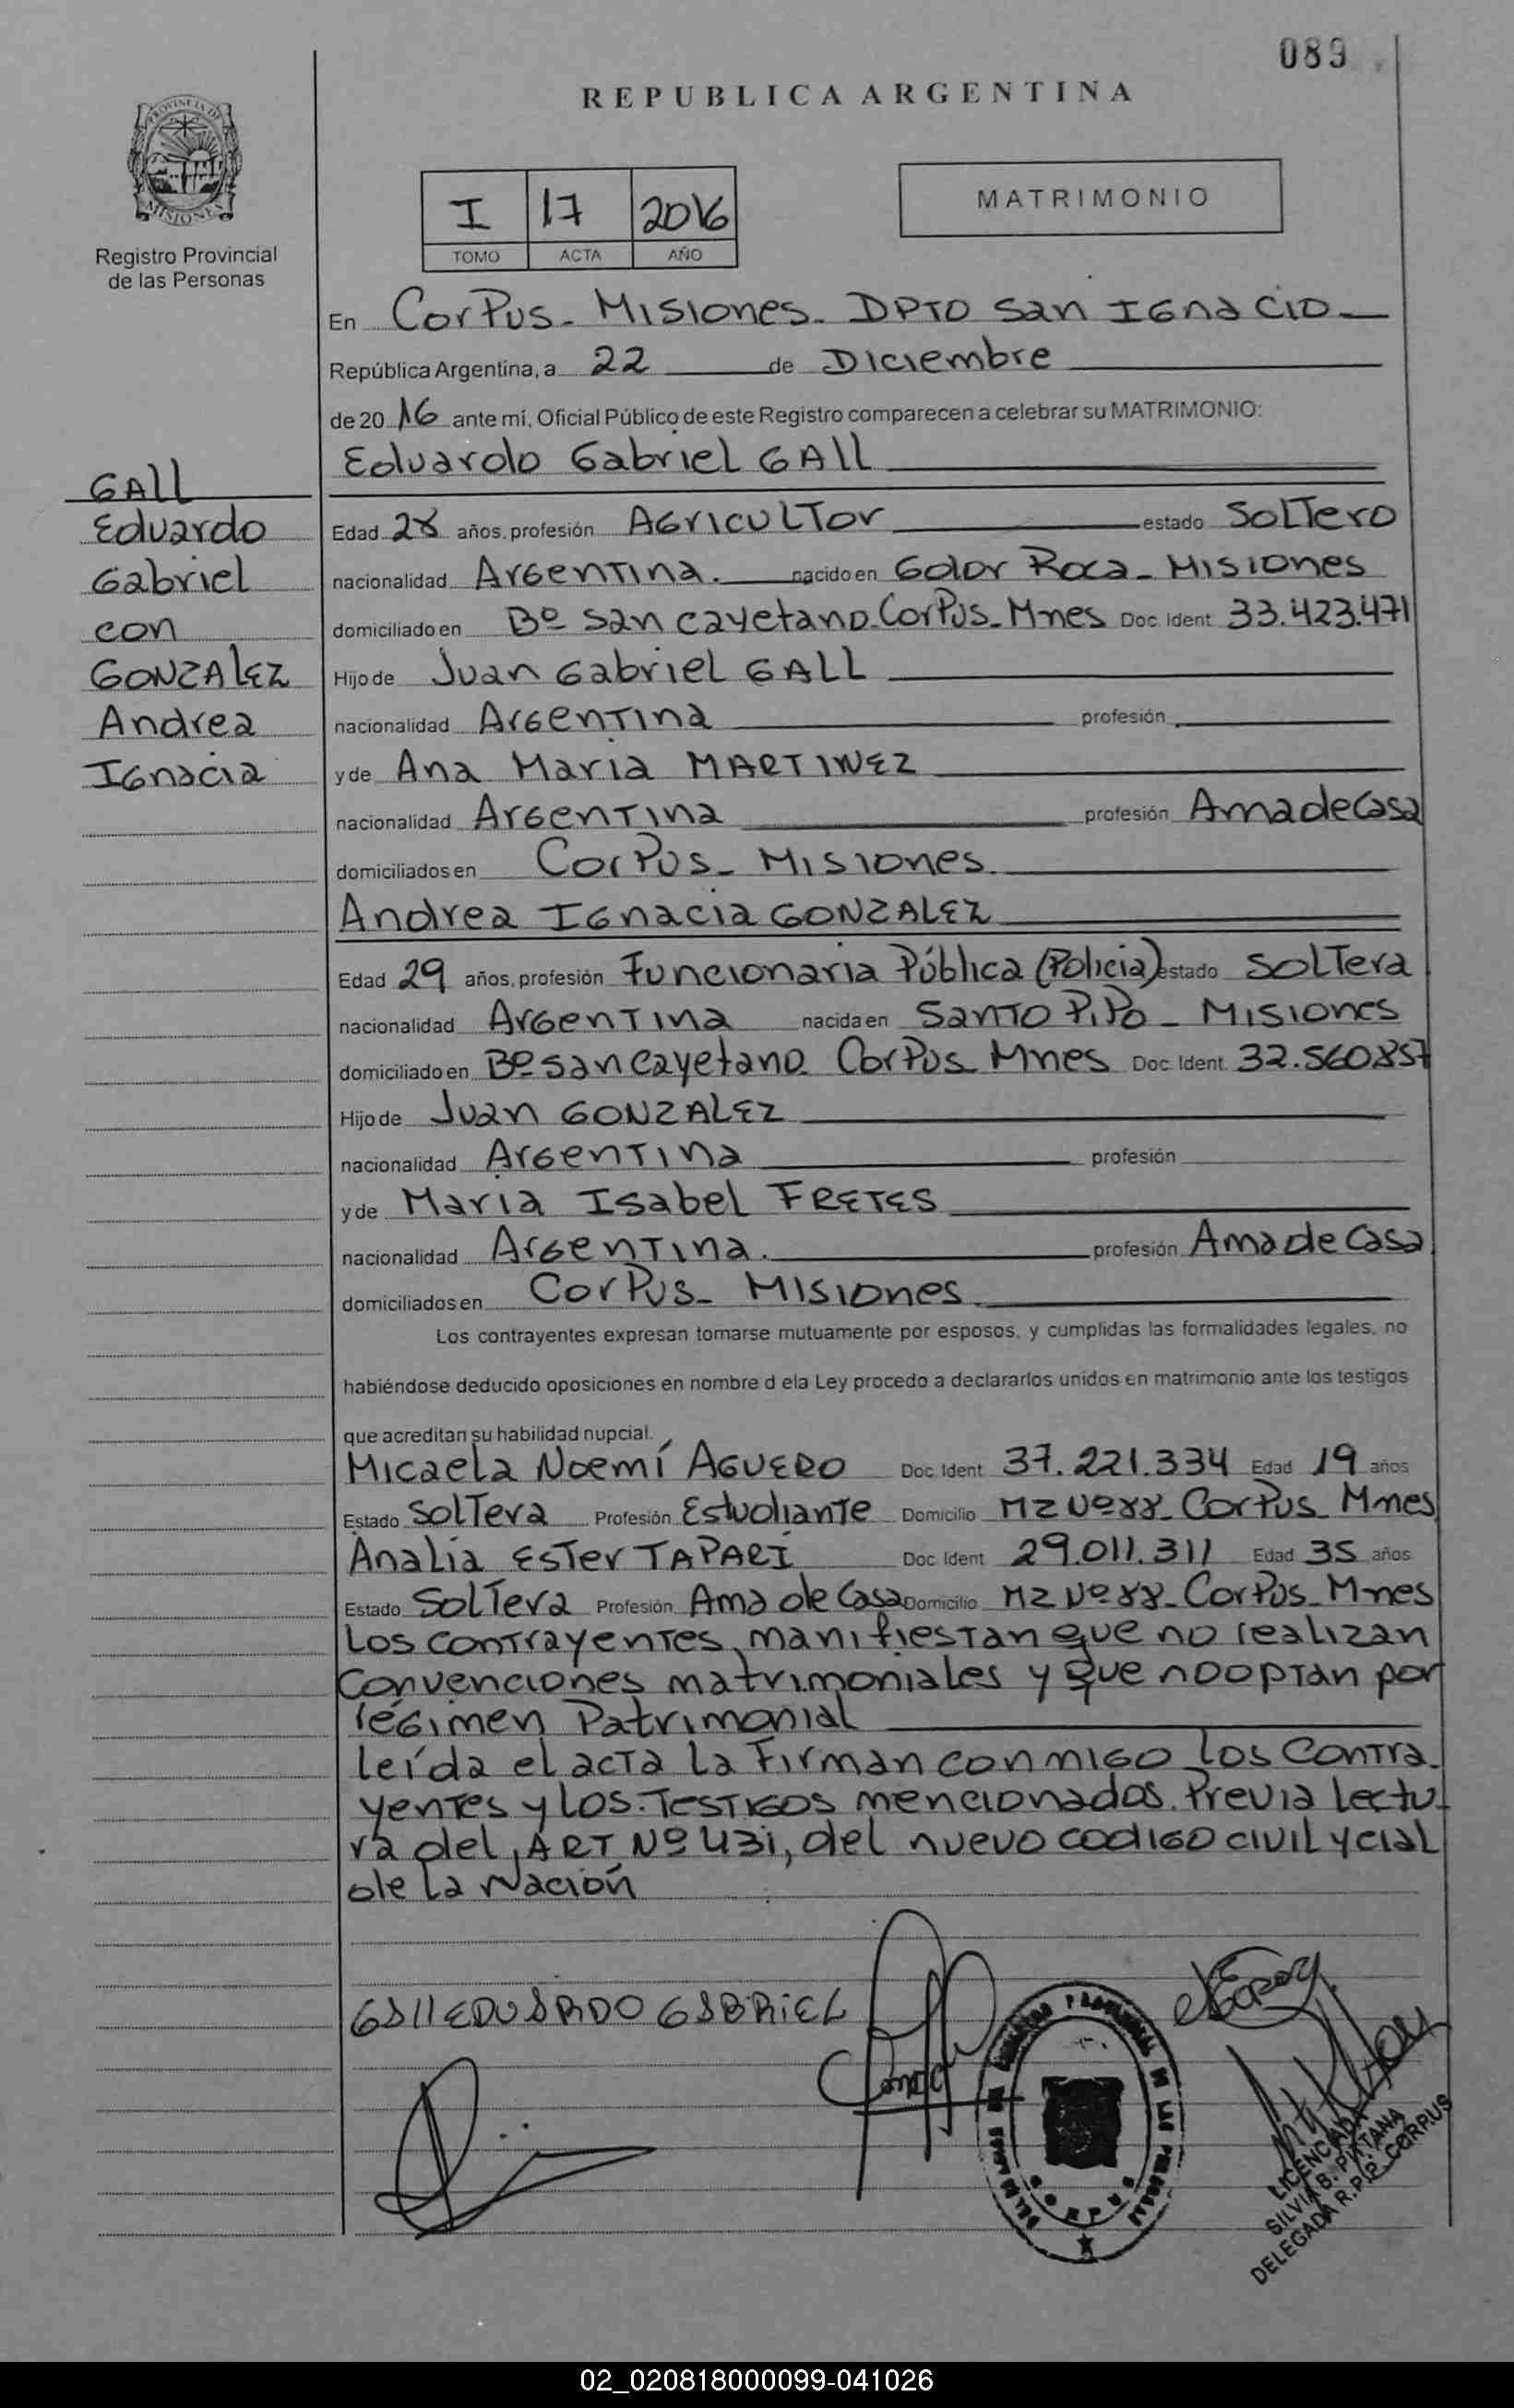 089
REPUBLICA ARGENTINA
PROVINCIA DE
MISIONES
Registro Provincial
de las Personas
I 17 2016
TOMO ACTA AÑO
MATRIMONIO
En Corpus - Misiones - DPTO San Ignacio
República Argentina, a 22 de Diciembre
de 20 16 ante mi, Oficial Público de este Registro comparecen a celebrar su MATRIMONIO:
Eduardo Gabriel GAll
GAll
Eduardo
Gabriel
con
GONZALEZ
Andrea
Ignacia
Edad 28 años, profesión Agricultor estado Soltero
nacionalidad Argentina. nacido en Gdor Roca - Misiones
domiciliado en Bº San Cayetano - Corpus - Mnes Doc. Ident 33.423.471
Hijo de Juan Gabriel GALL
nacionalidad Argentina profesión
y de Ana Maria MARTINEZ
nacionalidad Argentina profesión Ama de Casa
domiciliados en Corpus - Misiones
Andrea Ignacia GONZALEZ
Edad 29 años, profesión Funcionaria Pública (Policia) estado Soltera
nacionalidad Argentina nacida en Santo Pipo - Misiones
domiciliado en Bº San Cayetano Corpus Mnes Doc. Ident. 32.560.857
Hijo de Juan GONZALEZ
nacionalidad Argentina profesión
y de Maria Isabel FRETES
nacionalidad Argentina. profesión Ama de Casa
domiciliados en Corpus - Misiones
Los contrayentes expresan tomarse mutuamente por esposos, y cumplidas las formalidades legales, no
habiéndose deducido oposiciones en nombre d ela Ley procedo a declararlos unidos en matrimonio ante los testigos
que acreditan su habilidad nupcial.
Micaela Noemí AGUERO Doc. Ident 37.221.334 Edad 19 años
Estado Soltera Profesión Estudiante Domicilio MZ Nº 88 - Corpus Mnes
Analia Ester TAPARI Doc. Ident 29.011.311 Edad 35 años
Estado Soltera Profesión Ama de Casa Domicilio MZ Nº 88 - Corpus - Mnes
Los contrayentes, manifiestan que no realizan
Convenciones matrimoniales y que no optan por
régimen Patrimonial
leída el acta la Firman conmigo los Contra-
yentes y los testigos mencionados. Previa lectu-
ra del, ART Nº 431, del nuevo codigo civil y cial
de la Nación
GAll EDUARDO GABRIEL
LICENCIADA
SILVIA B. PITTANA
DELEGADA R.P.P. CORPUS
02_020818000099-041026